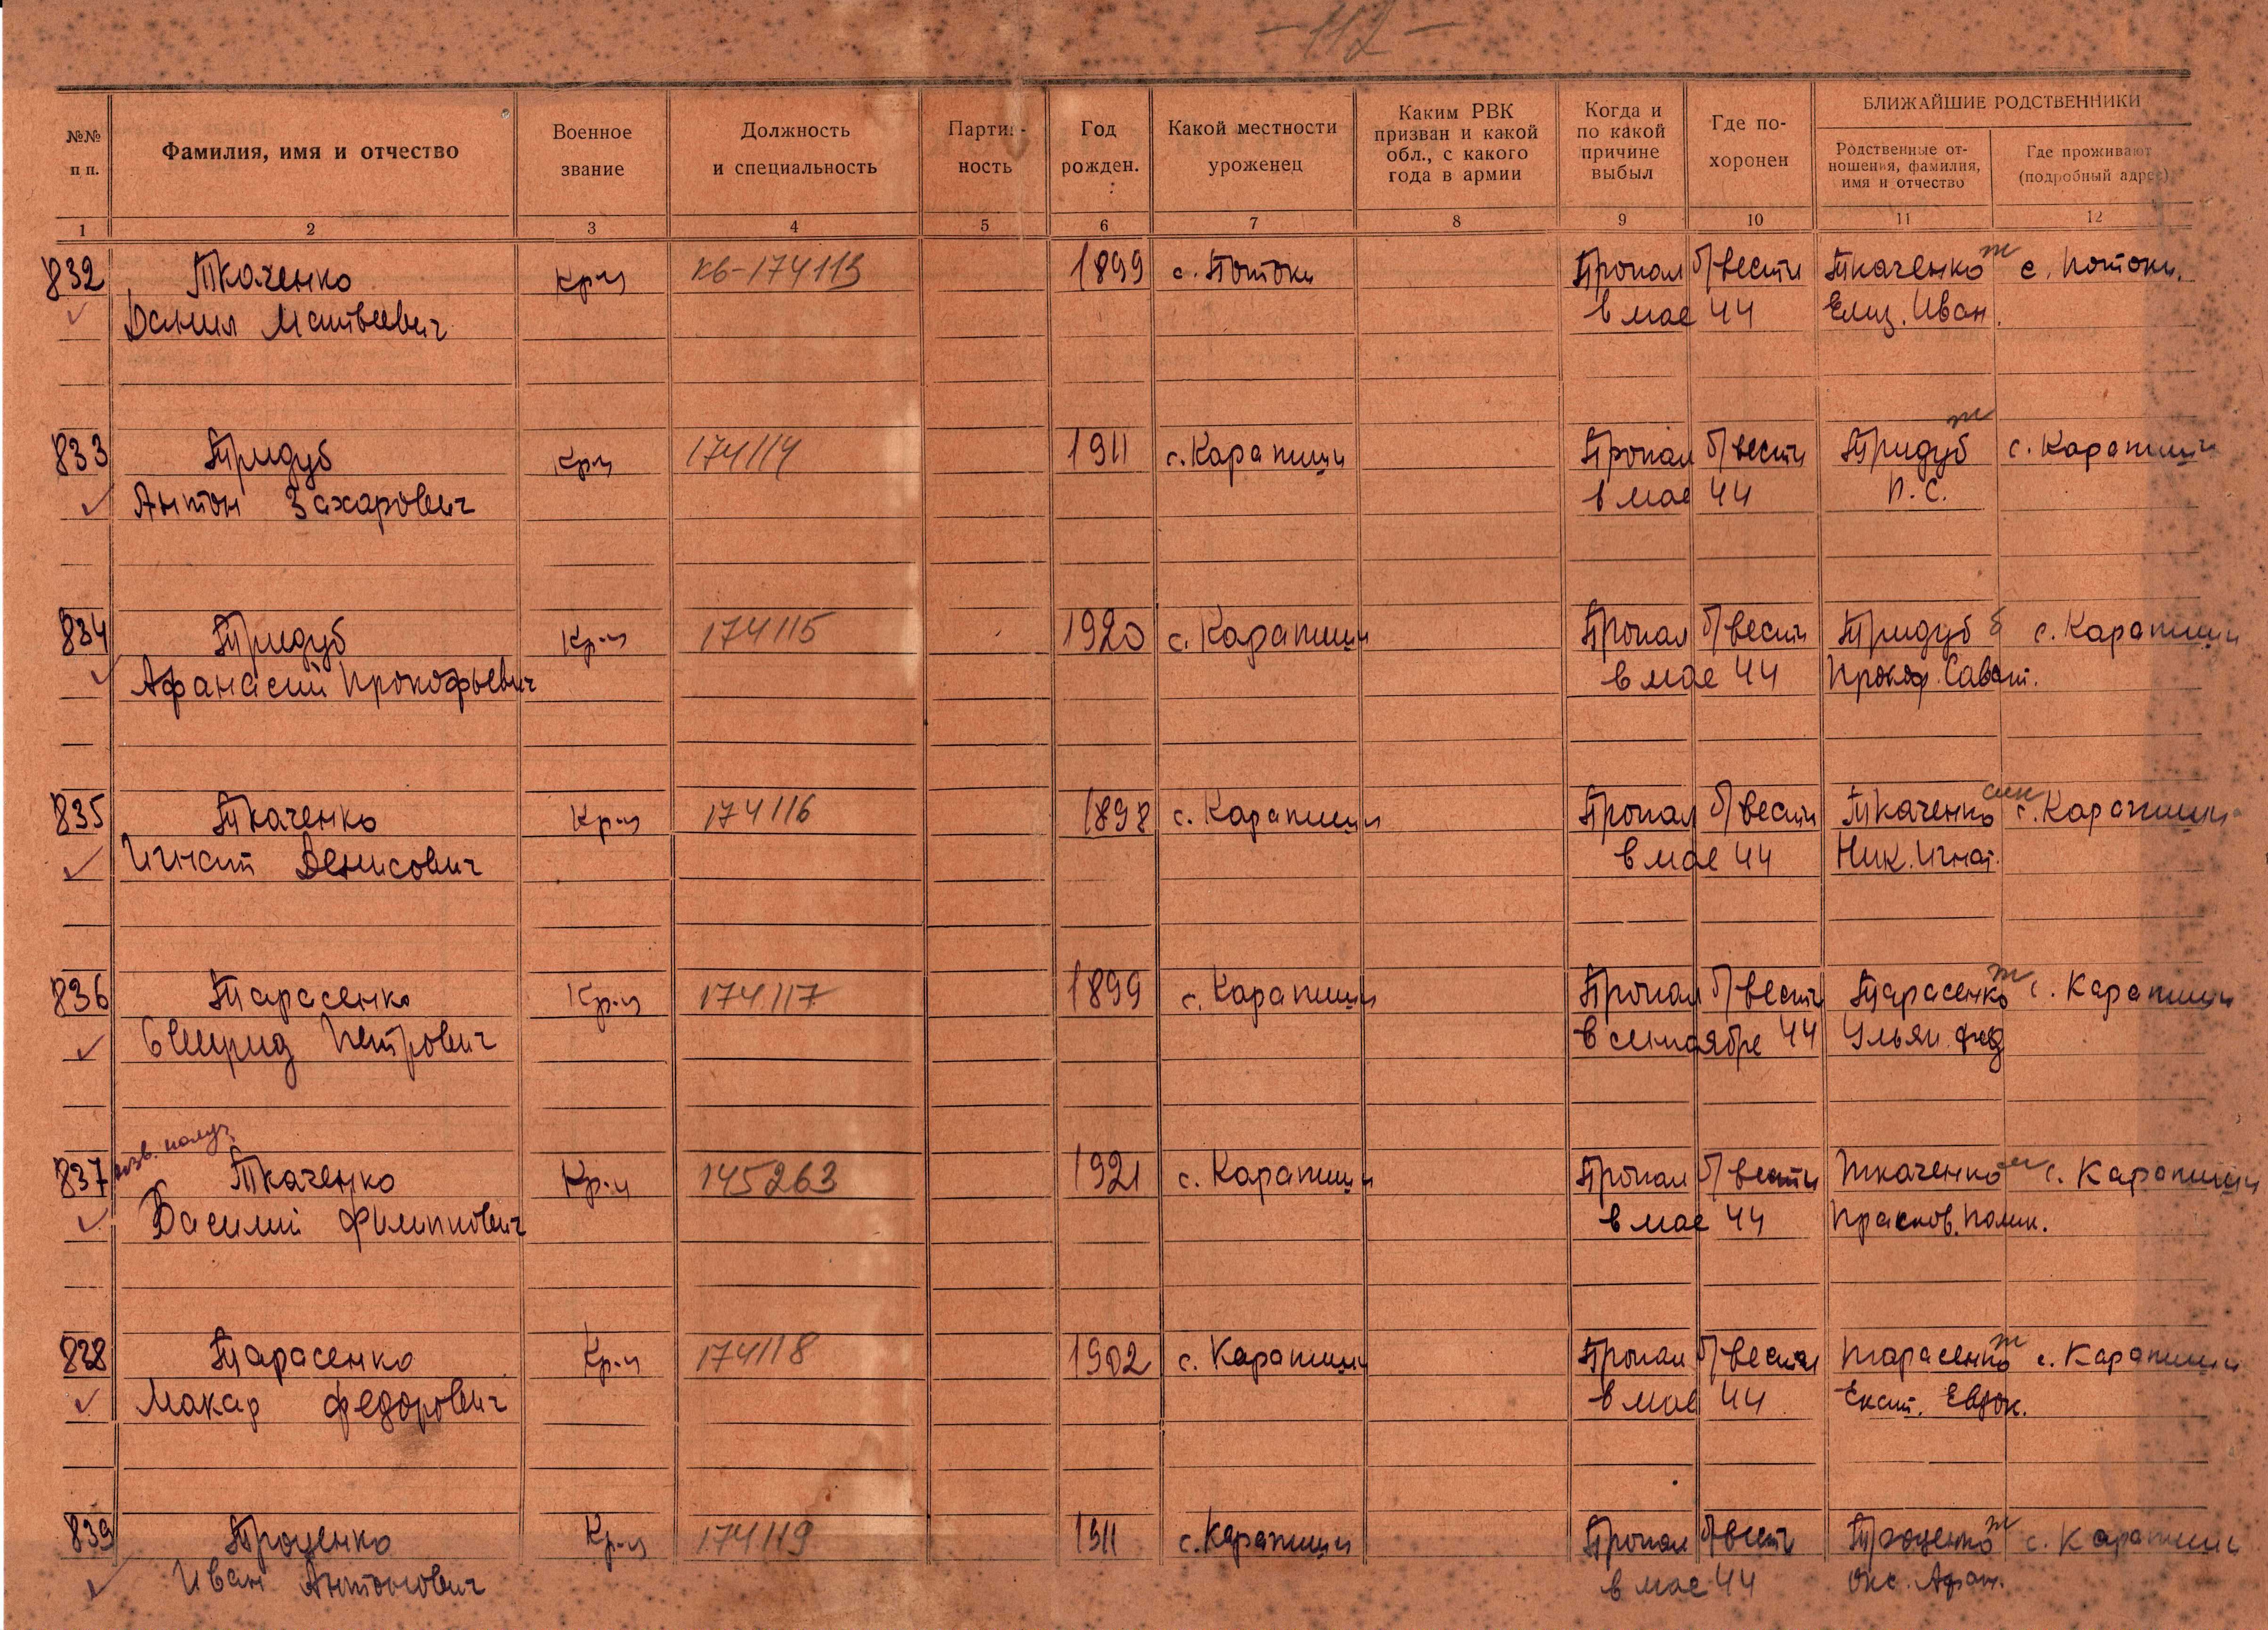 - 112 -
№№ п п.
Фамилия, имя и отчество
Военное звание
Должность и специальность
Партий- ность
Год рожден.
Какой местности уроженец
Каким РВК призван и какой обл., с какого года в армии
Когда и по какой причине выбыл
Где по- хоронен
БЛИЖАЙШИЕ РОДСТВЕННИКИ
Родственные от- ношения, фамилия, имя и отчество
Где проживают (подробный адрес)
1 2 3 4 5 6 7 8 9 10 11 12
832 Ткаченко Кр-ц кв-174113 1899 с. Потоки Пропал б/вести Ткаченко ж с. Потоки.
Данил Матвеевич в мае 44 Елиз. Иван.
833 Тридуб Кр-ц 174114 1911 с. Карапиши Пропал б/вести Тридуб ж с. Карапиши
Антон Захарович в мае 44 П. С.
834 Тридуб Кр-ц 174115 1920 с. Карапиши Пропал б/вести Тридуб б с. Карапиши
Афанасий Прокофьевич в мае 44 Прокоф. Савват.
835 Ткаченко Кр-ц 174116 1898 с. Карапиши Пропал б/вести Ткаченко сын с. Карапиши
Игнат Денисович в мае 44 Ник. Игнат.
836 Тарасенко Кр-ц 174117 1899 с. Карапиши Пропал б/вести Тарасенко ж с. Карапиши
Свирид Петрович в сентябре 44 Ульян. Фед
изв. получ.
837 Ткаченко Кр-ц 145263 1921 с. Карапиши Пропал б/вести Ткаченко м с. Карапиши
Василий Филиппович в мае 44 Прасков.
838 Тарасенко Кр-ц 174118 1902 с. Карапиши Пропал б/вести Тарасенко ж с. Карапиши
Макар Федорович в мае 44 Екат. Евдок.
839 Троценко Кр-ц 174119 1911 с. Карапиши Пропал б/вести Троценко ж с. Карапиши
Иван Антонович в мае 44 Окс. Афан.